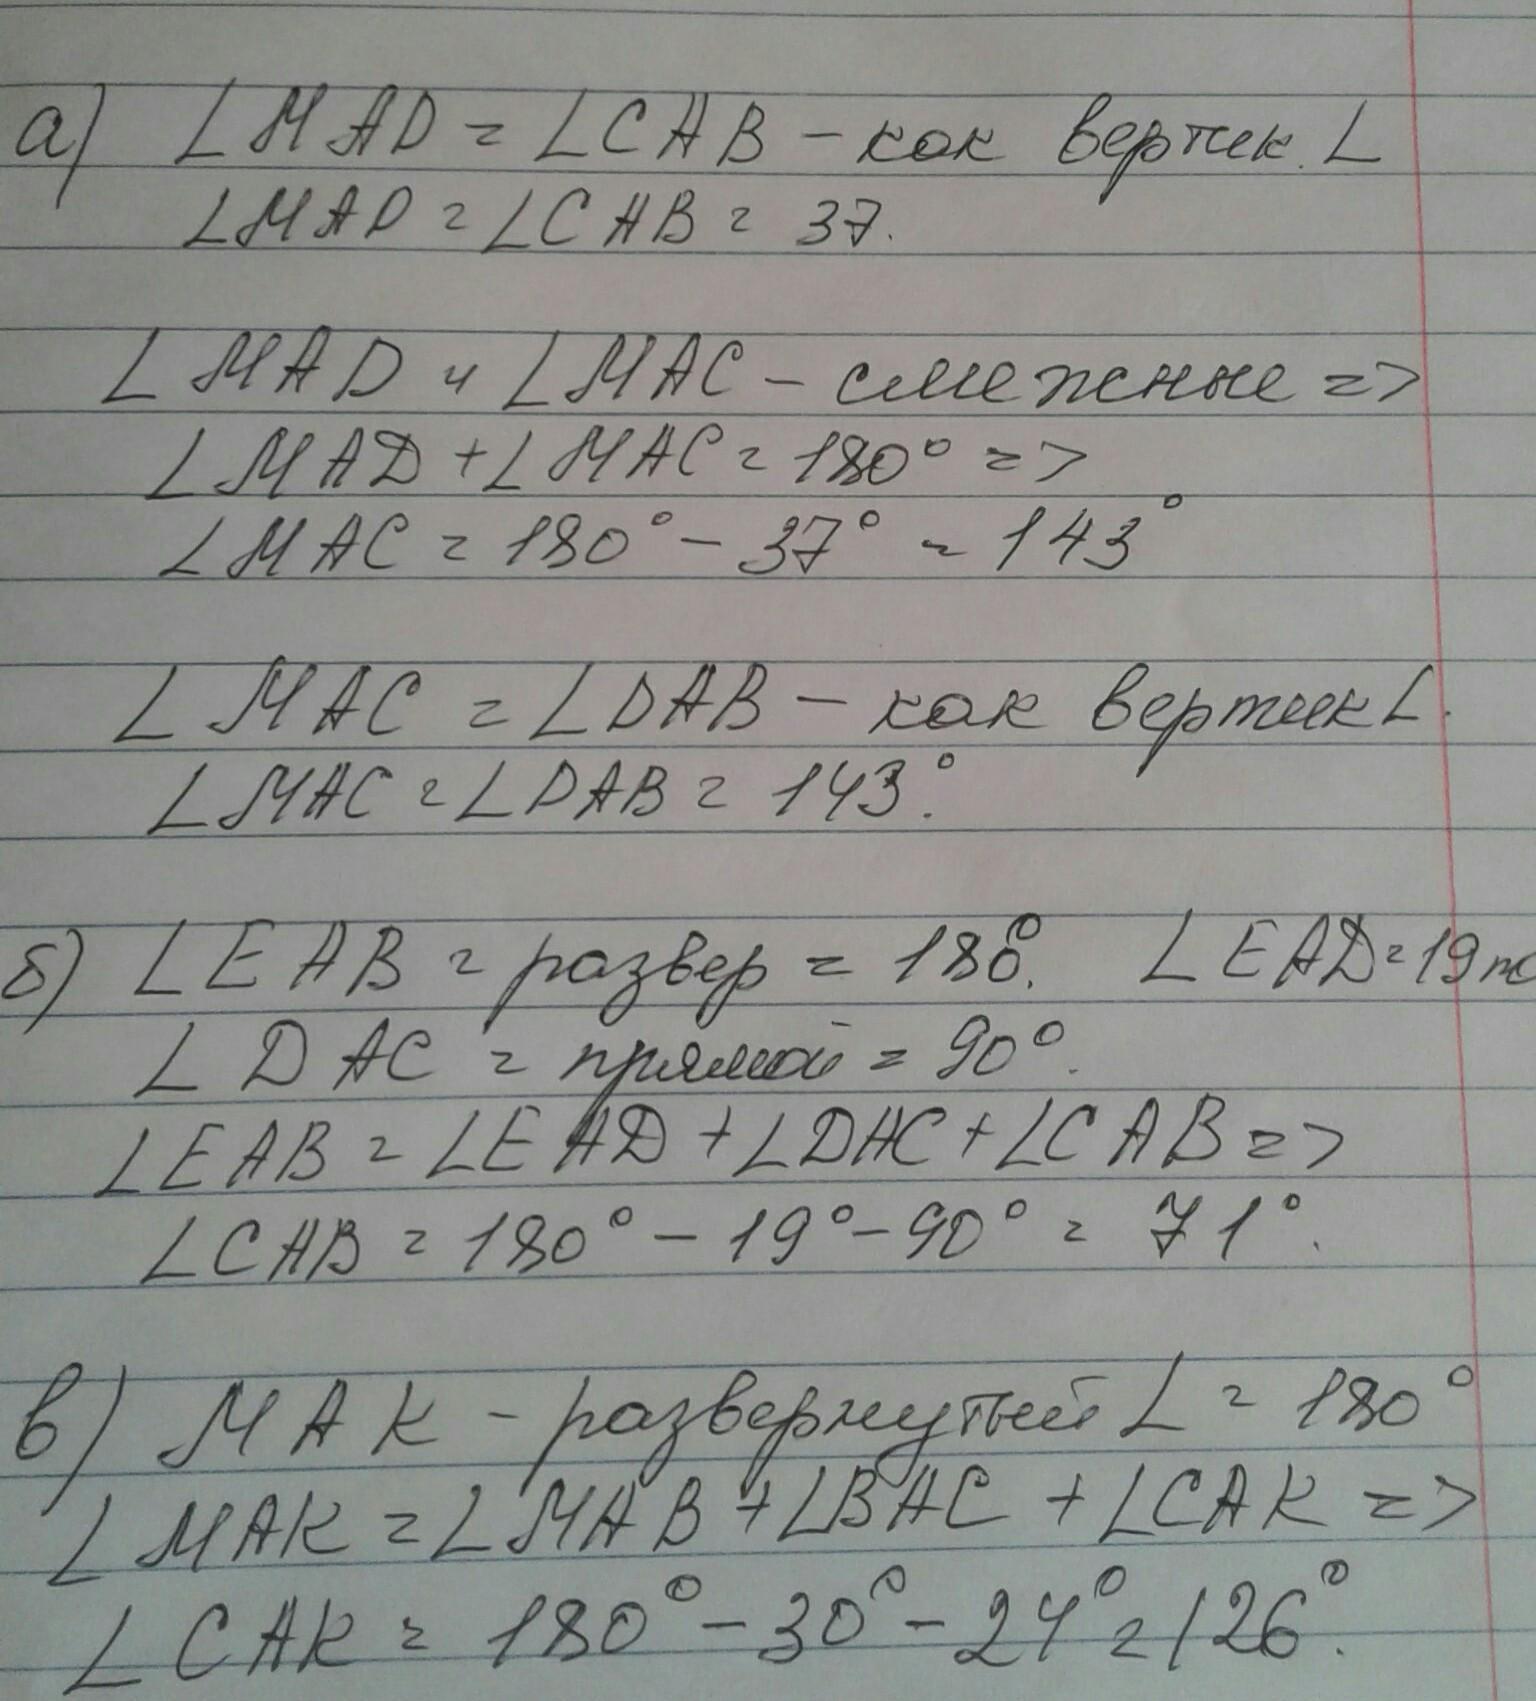 а) ∠MAD = ∠CAB – как вертик. ∠
∠MAD = ∠CAB = 37.
∠MAD и ∠MAC – смежные =>
∠MAD + ∠MAC = 180° =>
∠MAC = 180° – 37° = 143°
∠MAC = ∠DAB – как вертик ∠.
∠MAC = ∠DAB = 143°.
б) ∠EAB = развер = 180°. ∠EAD = 19 по
∠DAC = прямой = 90°.
∠EAB = ∠EAD + ∠DAC + ∠CAB =>
∠CAB = 180° – 19° – 90° = 71°.
в) MAK – развернутый ∠ = 180°
∠MAK = ∠MAB + ∠BAC + ∠CAK =>
∠CAK = 180° – 30° – 24° = 126°.